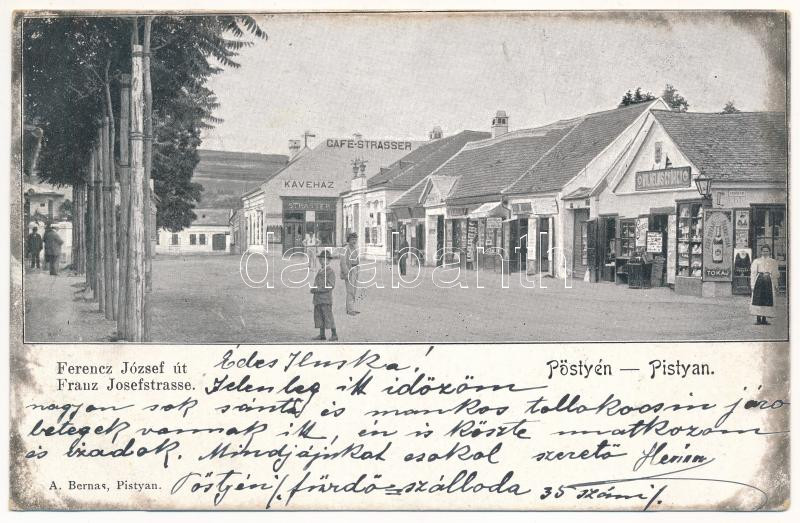 CAFE-STRASSER
KÁVÉHÁZ
STRASSER
TOKAJ
darabanth.com
Ferencz József út
Franz Josefstrasse.
Pöstyén — Pistyan.
Édes Iluska!
Jelenleg itt időzöm
nagyon sok sánta és mankos tollakocsin járo
betegek vannak itt, én is közte unatkozom
és izadok. Mindjájukat csokol szerető
A. Bernas, Pistyan.
Pöstyén /. fürdő=szálloda 35 számi /.